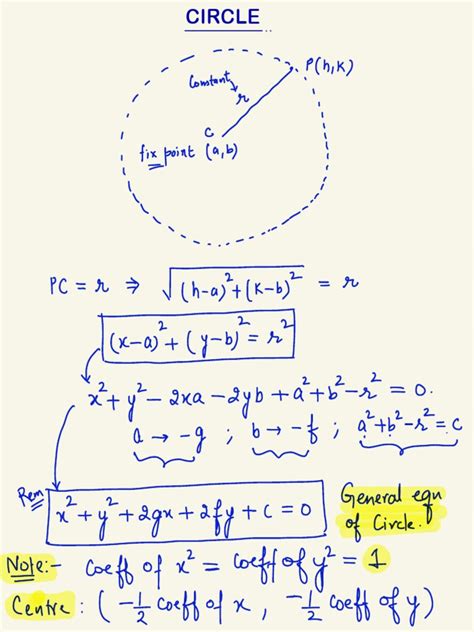 CIRCLE
P(h,k)
Constant
r
C
fix point (a,b)
PC = r ⇒ √((h-a)²+(k-b)²) = r
(x-a)² + (y-b)² = r²
x²+y²-2xa-2yb+a²+b²-r²=0.
a → -g ; b → -f ; a²+b²-r²=c
Rem
x²+y²+2gx+2fy+c=0
General eqn
of Circle.
Note:- Coeff of x² = Coeff of y² = 1
Centre : (-1/2 coeff of x, -1/2 coeff of y)